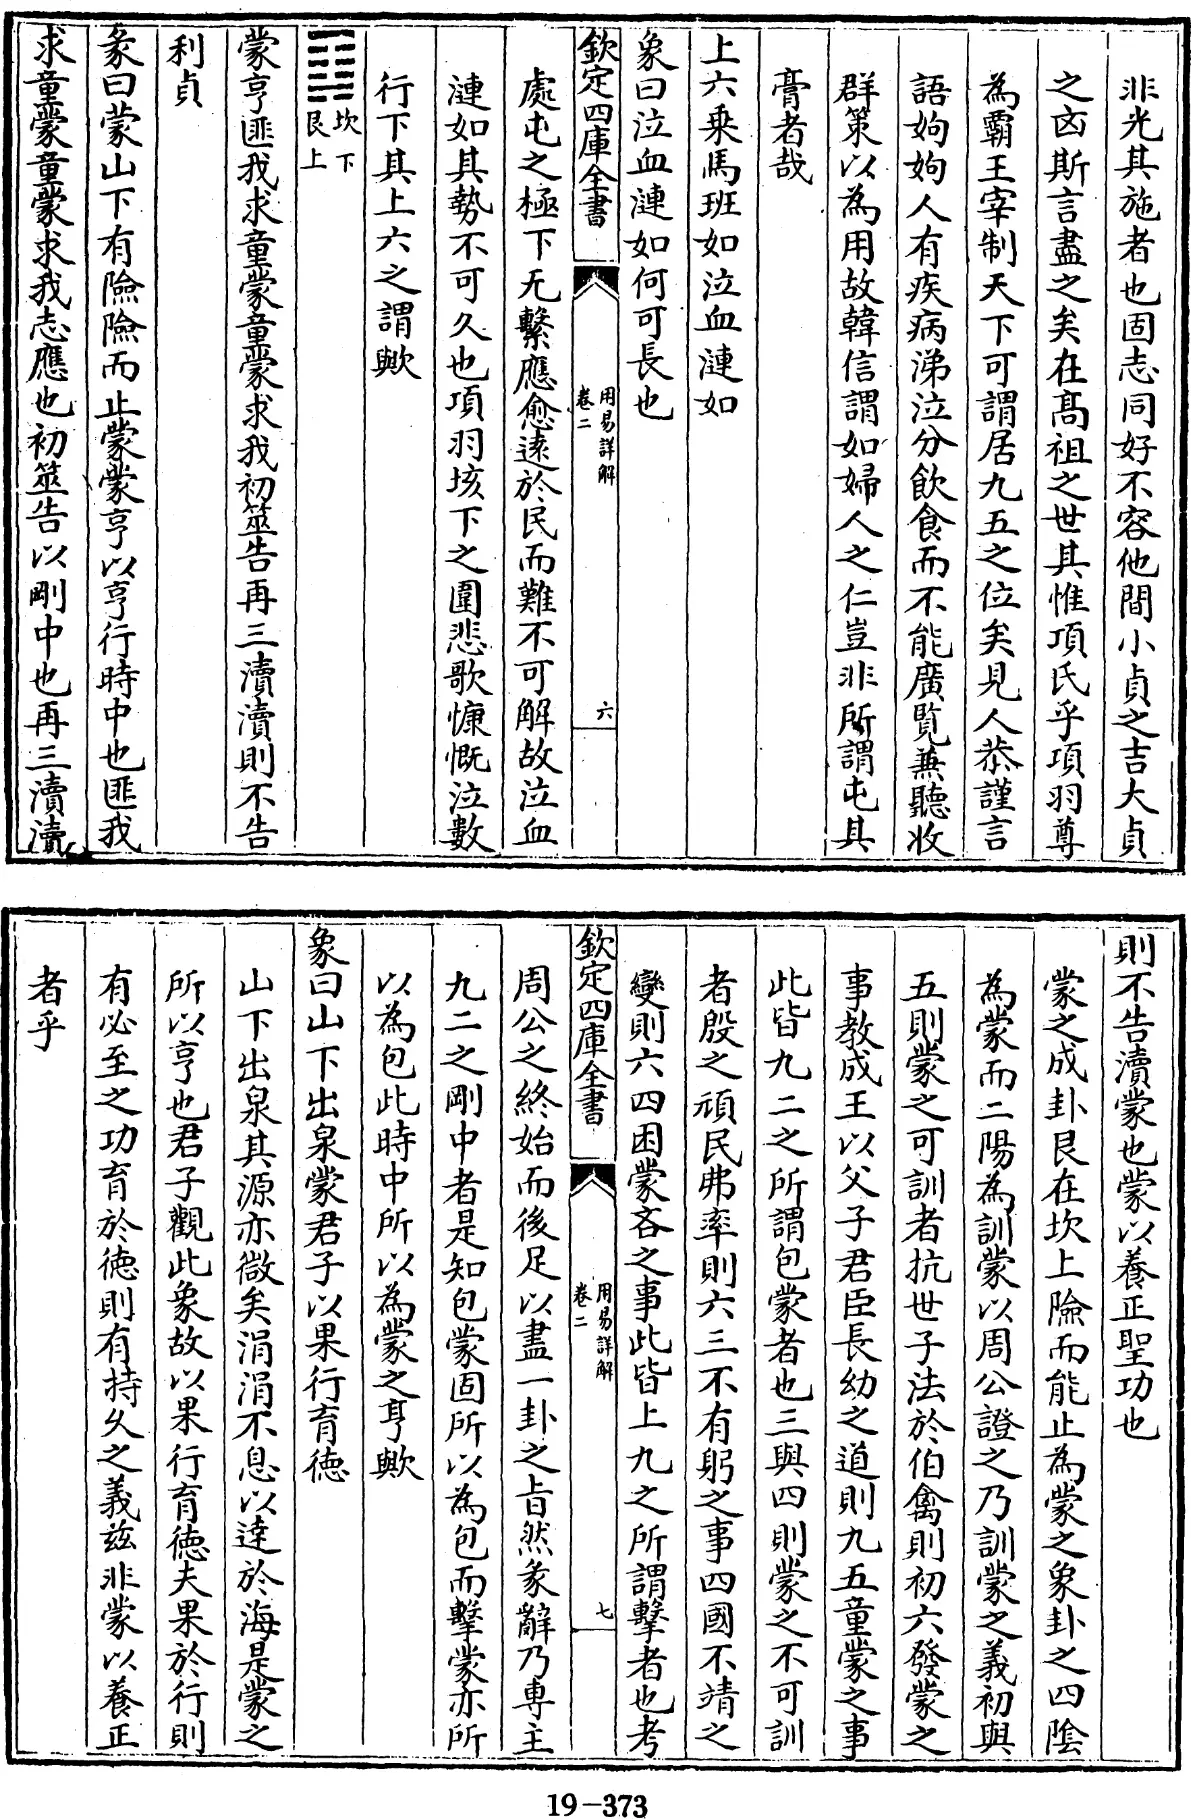 非光其施者也固志同好不容他間小貞之吉大貞
之凶斯言盡之矣在髙祖之世其惟項氏乎項羽尊
為霸王宰制天下可謂居九五之位矣見人恭謹言
語姁姁人有疾病涕泣分飲食而不能廣覧兼聽收
群策以為用故韓信謂如婦人之仁豈非所謂屯其
膏者哉
上六乗馬班如泣血漣如
象曰泣血漣如何可長也
欽定四庫全書
用易詳解
卷二
六
處屯之極下无繫應愈逺於民而難不可解故泣血
漣如其勢不可久也項羽垓下之圍悲歌慷慨泣數
行下其上六之謂歟
坎下
艮上
蒙亨匪我求童蒙童蒙求我初筮告再三瀆瀆則不告
利貞
彖曰蒙山下有險險而止蒙蒙亨以亨行時中也匪我
求童蒙童蒙求我志應也初筮告以剛中也再三瀆瀆
則不告瀆蒙也蒙以養正聖功也
蒙之成卦艮在坎上險而能止為蒙之象卦之四隂
為蒙而二陽為訓蒙以周公證之乃訓蒙之義初與
五則蒙之可訓者抗世子法於伯禽則初六發蒙之
事教成王以父子君臣長幼之道則九五童蒙之事
此皆九二之所謂包蒙者也三與四則蒙之不可訓
者殷之頑民弗率則六三不有躬之事四國不靖之
變則六四困蒙吝之事此皆上九之所謂擊者也考
欽定四庫全書
用易詳解
卷二
七
周公之終始而後足以盡一卦之㫖然彖辭乃専主
九二之剛中者是知包蒙固所以為包而擊蒙亦所
以為包此時中所以為蒙之亨歟
象曰山下出泉蒙君子以果行育徳
山下出泉其源亦微矣涓涓不息以逹於海是蒙之
所以亨也君子觀此象故以果行育徳夫果於行則
有必至之功育於徳則有持久之義兹非蒙以養正
者乎
19-373